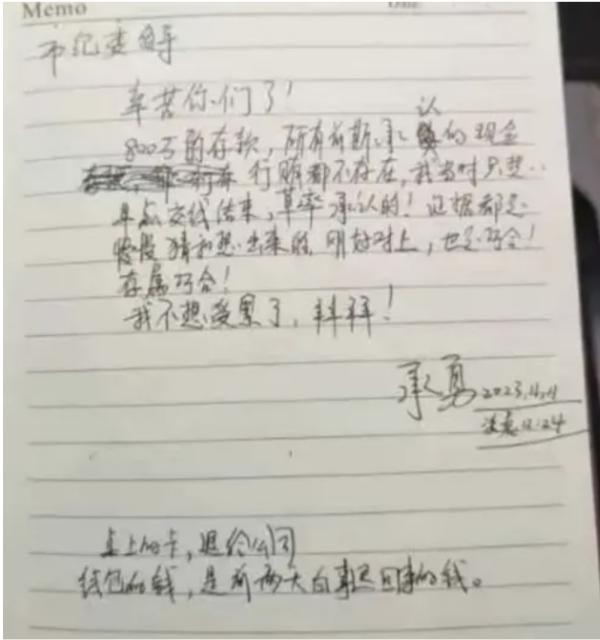 Memo
市纪委领导
辛苦你们了!
800万的存款,所有前期承认的现金
行贿都不存在,我当时只想
早点交钱结束,草率承认的!证据都是
慢慢猜和想出来的,刚好对上,也是巧合!
存属巧合!
我不想受累了,拜拜!
承勇 2023.4.11
凌晨12:24
桌上的卡,退给公司
钱包的钱,是前两天白事退回来的钱。